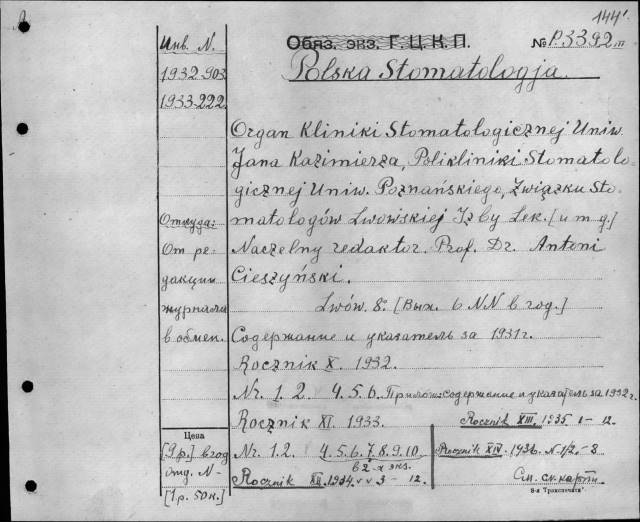 144
Инв. N.
1932-903
1933-222
Откуда:
От ре-
дакции
журнала
в обмен.
Цена
[9 р.] в год
отд. N-
[1 р. 50 к.]
Обяз. экз. Г. Ц. К. П.
№ P.3392
Polska Stomatologja.
Organ Kliniki Stomatologicznej Uniw.
Jana Kazimierza, Polikliniki Stomatolo-
gicznej Uniw. Poznańskiego, Związku Sto-
matologów Lwowskiej Izby Lek. [и т.д.]
Naczelny redaktor. Prof. Dr. Antoni
Cieszyński.
Lwów. 8º. [Вых. 6 NN в год.]
Содержание и указатель за 1931 г.
Rocznik X. 1932.
Nr. 1. 2. 4. 5. 6. Прилож: содержание и указатель за 1932 г.
Rocznik XI. 1933.
Rocznik XIII. 1935. 1-12.
Nr. 1. 2. 4. 5. 6. 7. 8. 9. 10.
в 2-х экз.
Rocznik XIV. 1936. N-1/2-3
Rocznik XII. 1934. 3-12.
См. сл. карт.
З-д "Транспечати"